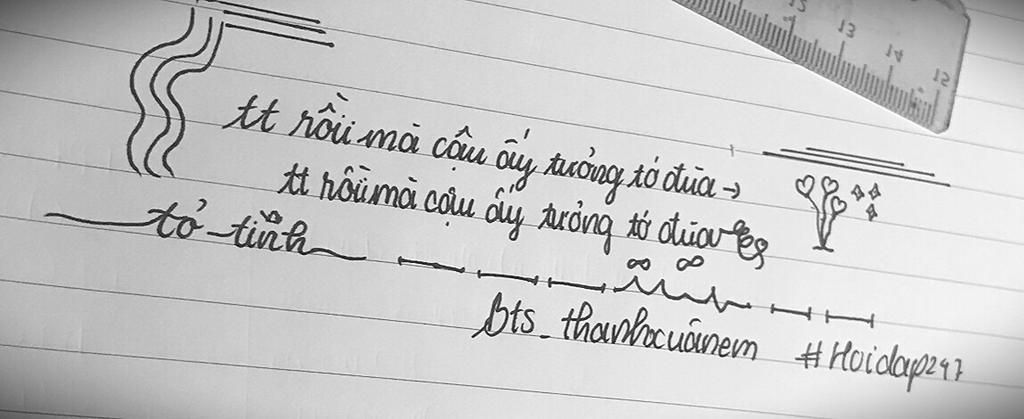 12 13 14 15
tt rồi mà cậu ấy tưởng tớ đùa →
tt rồi mà cậu ấy tưởng tớ đùa
tỏ-tình
Bts_thanhxuanem
#Hoidap247